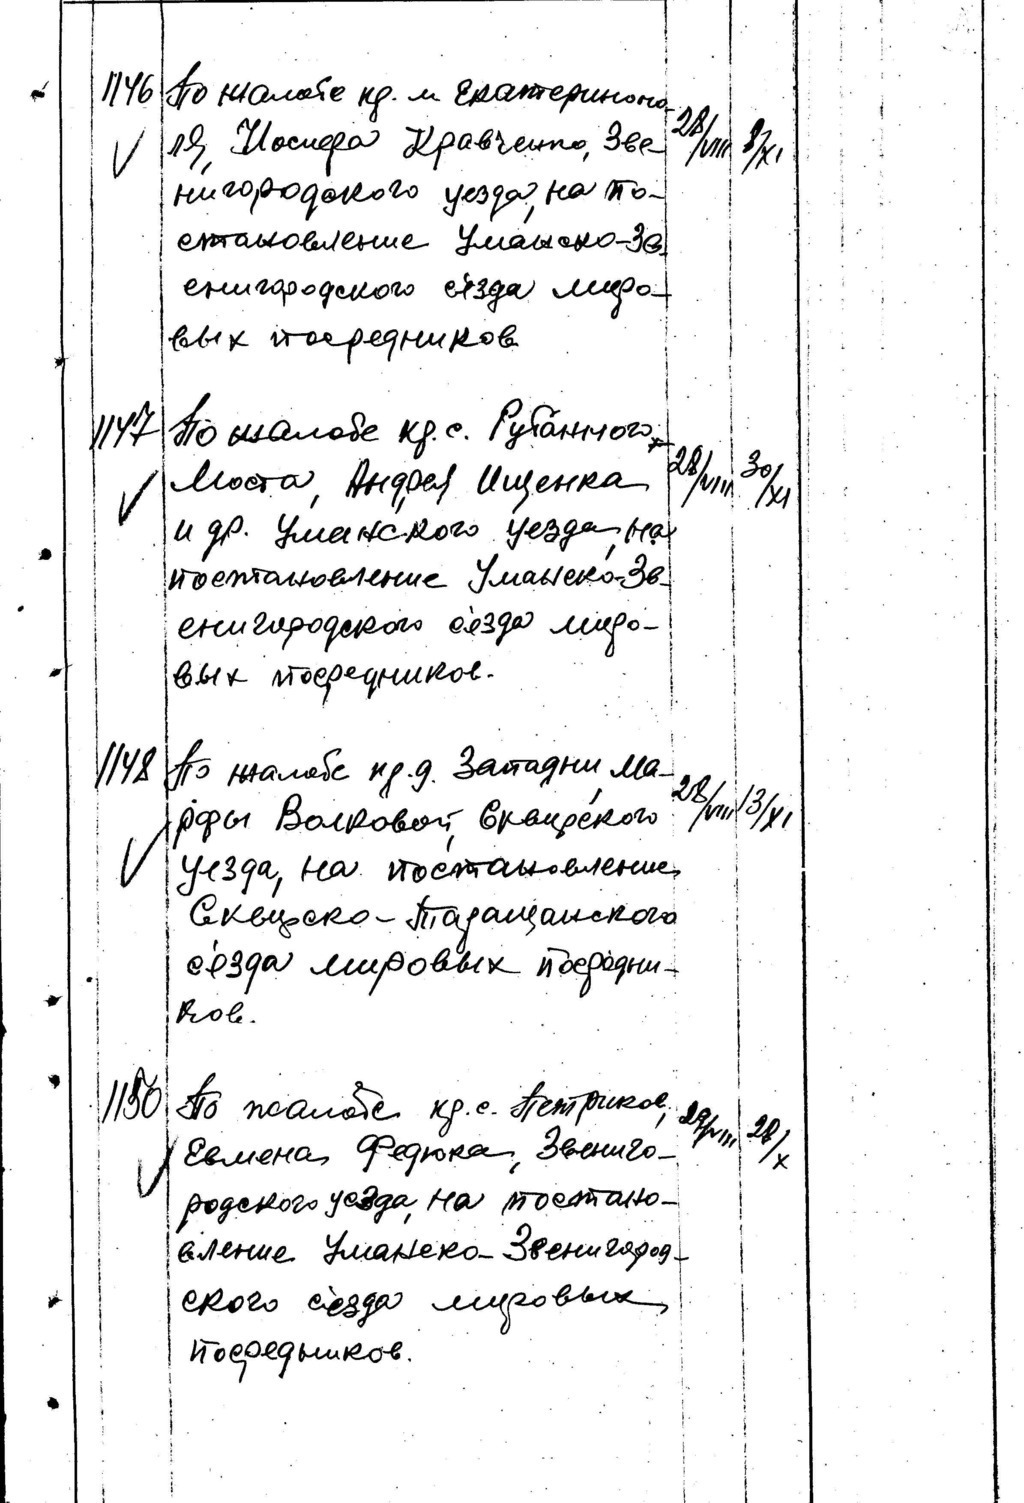 1146 По жалобе кр. м. Екатеринопо-
ля, Иосифа Кравченко, Зве- 28/VIII 8/XI
нигородского уезда, на по-
становление Уманско-Зв
енигородского с'езда миро-
вых посредников
1147 По жалобе кр. с. Рубанного
Моста, Андрея Ищенка 28/VIII 30/XI
и др. Уманского уезда, на
постановление Уманско-Зв-
енигородского с'езда миро-
вых посредников.
1148 По жалобе кр. д. Западни, Ма-
рфы Волковой, Сквирского 28/VIII 13/XI
уезда, на постановление
Сквирско-Таращанского
с'езда мировых посредни-
ков.
1150 По жалобе кр. с. Петриков, 29/VIII 28/X
Евмена Федюка, Звениго-
родского уезда, на постано-
вление Уманско-Звенигород-
ского с'езда мировых
посредников.